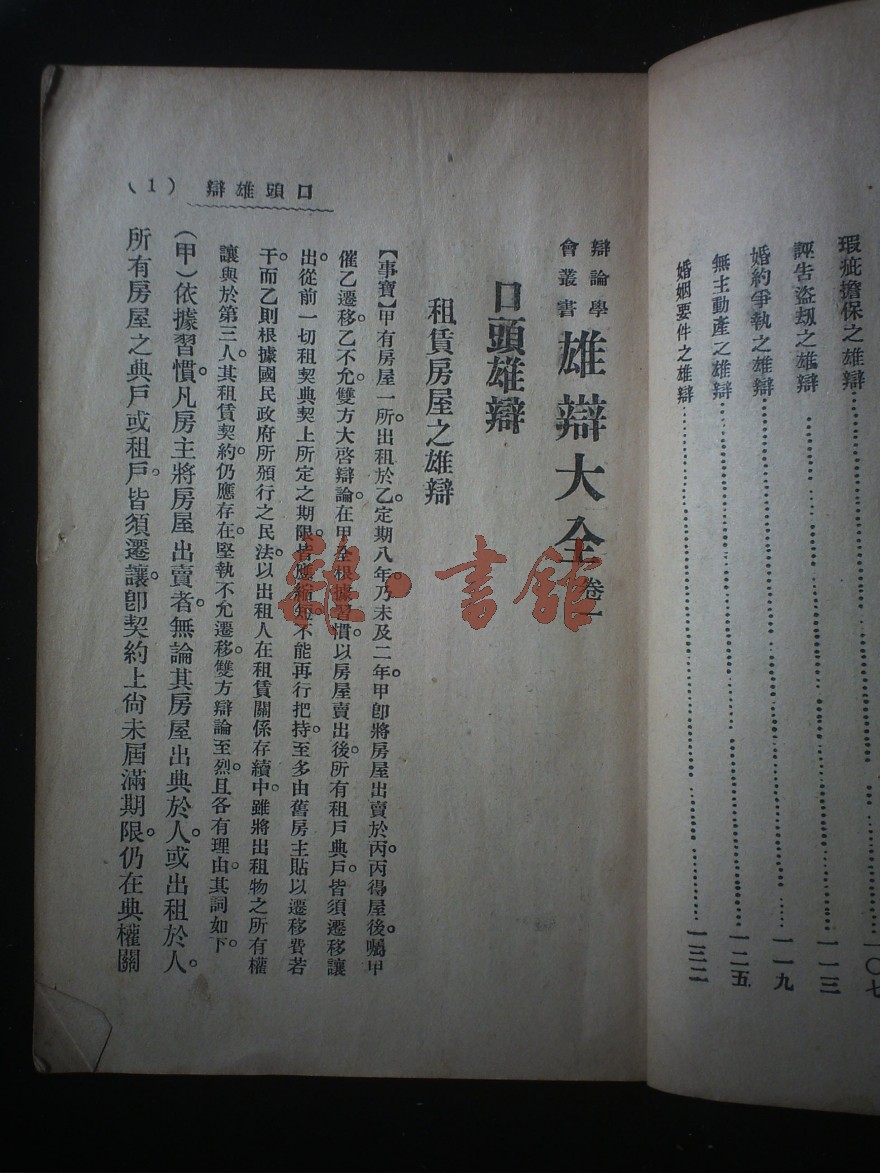 瑕疵擔保之雄辯⋯⋯一〇七
誣吿盜刼之雄辯⋯⋯一一三
婚約爭執之雄辯⋯⋯一一九
無主動產之雄辯⋯⋯一二五
婚姻要件之雄辯⋯⋯一三二
辯論學
會叢書
雄辯大全 卷一
口頭雄辯
租賃房屋之雄辯
【事實】甲有房屋一所。出租於乙。定期八年。乃未及二年。甲卽將房屋出賣於丙。丙得屋後。囑甲
催乙遷移。乙不允。雙方大啓辯論。在甲全根據習慣。以房屋賣出後。所有租戶典戶。皆須遷移讓
出。從前一切租契典契上所定之期限。皆應縮短。不能再行把持。至多由舊房主貼以遷移費若
干。而乙則根據國民政府所頒行之民法。以出租人在租賃關係存續中。雖將出租物之所有權
讓與於第三人。其租賃契約。仍應存在。堅執不允遷移。雙方辯論至烈。且各有理由。其詞如下。
(甲)依據習慣。凡房主將房屋出賣者。無論其房屋出典於人。或出租於人。
所有房屋之典戶或租戶。皆須遷讓。卽契約上尙未屆滿期限。仍在典權關
口頭雄辯
(1)
雜·書館